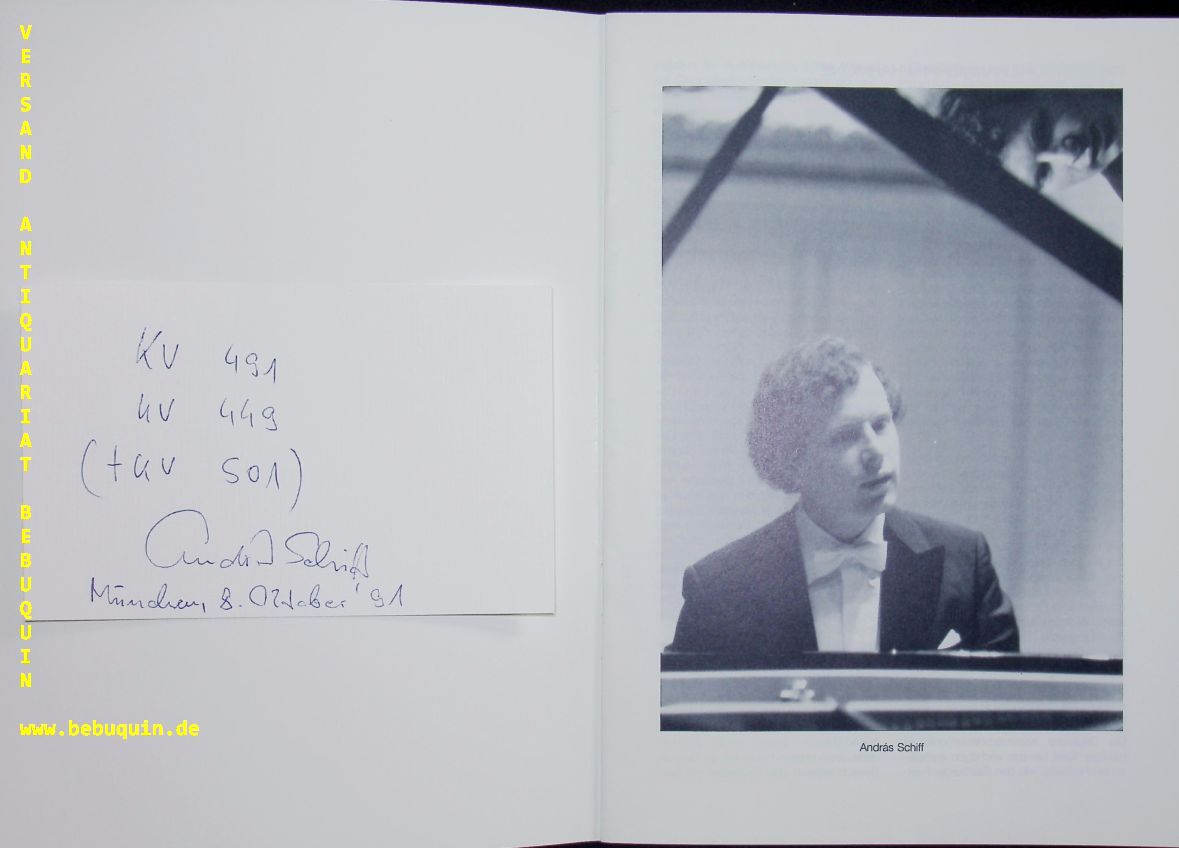 VERSAND ANTIQUARIAT BEBUQUIN
www.bebuquin.de
KV 491
KV 449
(+ KV 501)
András Schiff
München, 8. Oktober '91
András Schiff